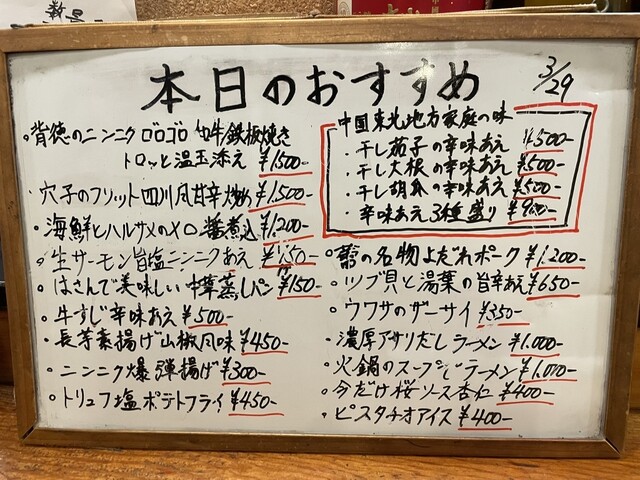 本日のおすすめ
3/29
・背徳のニンニクゴロゴロ 牛鉄板焼き
トロッと温玉添え ¥1500-
・穴子のフリット四川風甘辛炒め ¥1,500-
・海鮮とハルサメのXO醤煮込 ¥1,200-
・生サーモン旨塩ニンニクあえ
・はさんで美味しい中華蒸しパン ¥150-
・牛すじ辛味あえ ¥500-
・長芋素揚げ山椒風味 ¥450-
・ニンニク爆弾揚げ ¥300-
・トリュフ塩ポテトフライ ¥450-
中国東北地方家庭の味
・干し茄子の辛味あえ ¥500-
・干し大根の辛味あえ ¥500-
・干し胡瓜の辛味あえ ¥500-
・辛味あえ3種盛り
の名物よだれポーク ¥1,200-
・ツブ貝と湯葉の旨辛あえ ¥650-
・ウワサのザーサイ ¥350-
・濃厚アサリだしラーメン ¥1,000-
・火鍋のスープでラーメン ¥1,000-
・今だけ桜ソース杏仁 ¥400-
・ピスタチオアイス ¥400-